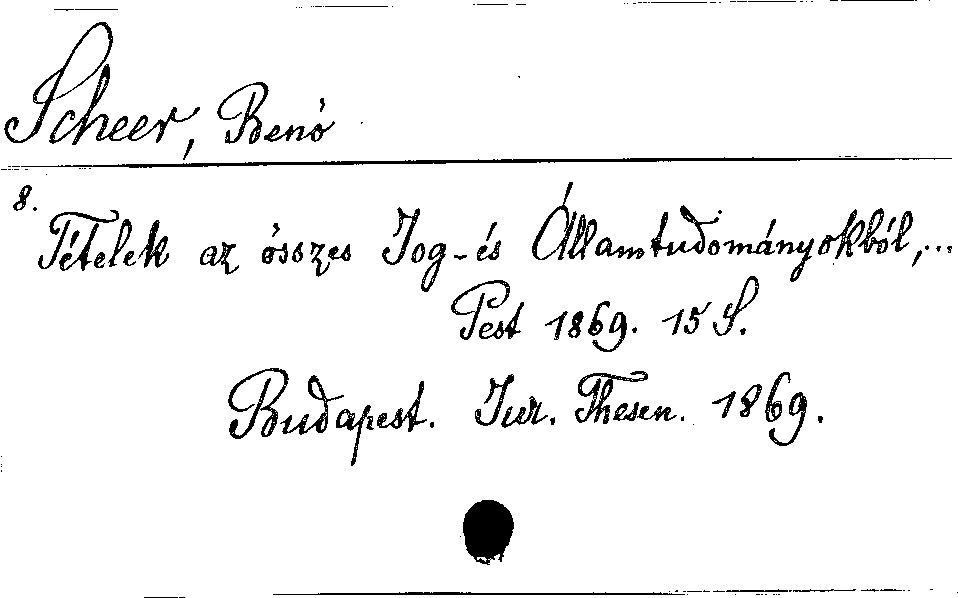 Scheer, Benó
8.
Tételek az összes Jog-és Államtudományokból,...
Pest 1869. 15 S.
Budapest. Jur. Thesen. 1869.